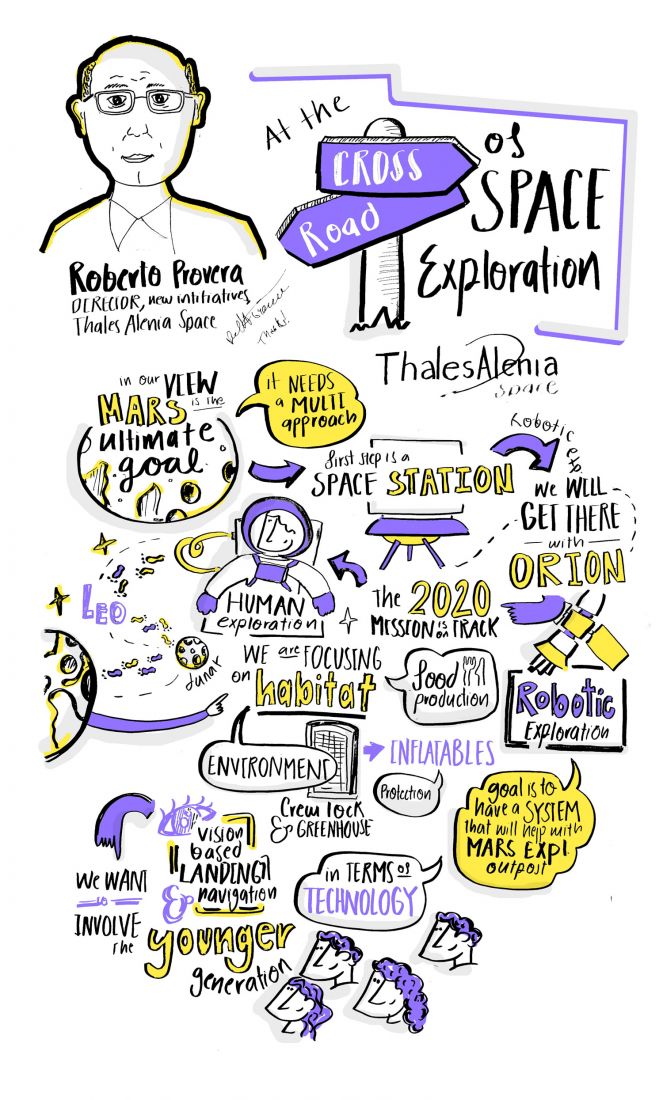 At the
CROSS
Road
of
SPACE
Exploration
Roberto Provera
DIRECTOR, new inititiatives
Thales Alenia Space
Thanks!
ThalesAlenia
space
in our VIEW
MARS is the
ultimate
goal
it NEEDS
a MULTI
approach
first step is a
SPACE STATION
Robotic
we WILL
GET THERE
with
ORION
HUMAN
exploration
The 2020
MISSION is on TRACK
LEO
lunar
WE are FOCUSING
on habitat
food
production
Robotic
Exploration
ENVIRONMENT
INFLATABLES
Crew lock
& GREENHOUSE
Protection
goal is to
have a SYSTEM
that will help with
MARS Expl.
outpost
vision
based
LANDING
&
navigation
in TERMS of
TECHNOLOGY
WE WANT
to
INVOLVE
the
younger
generation